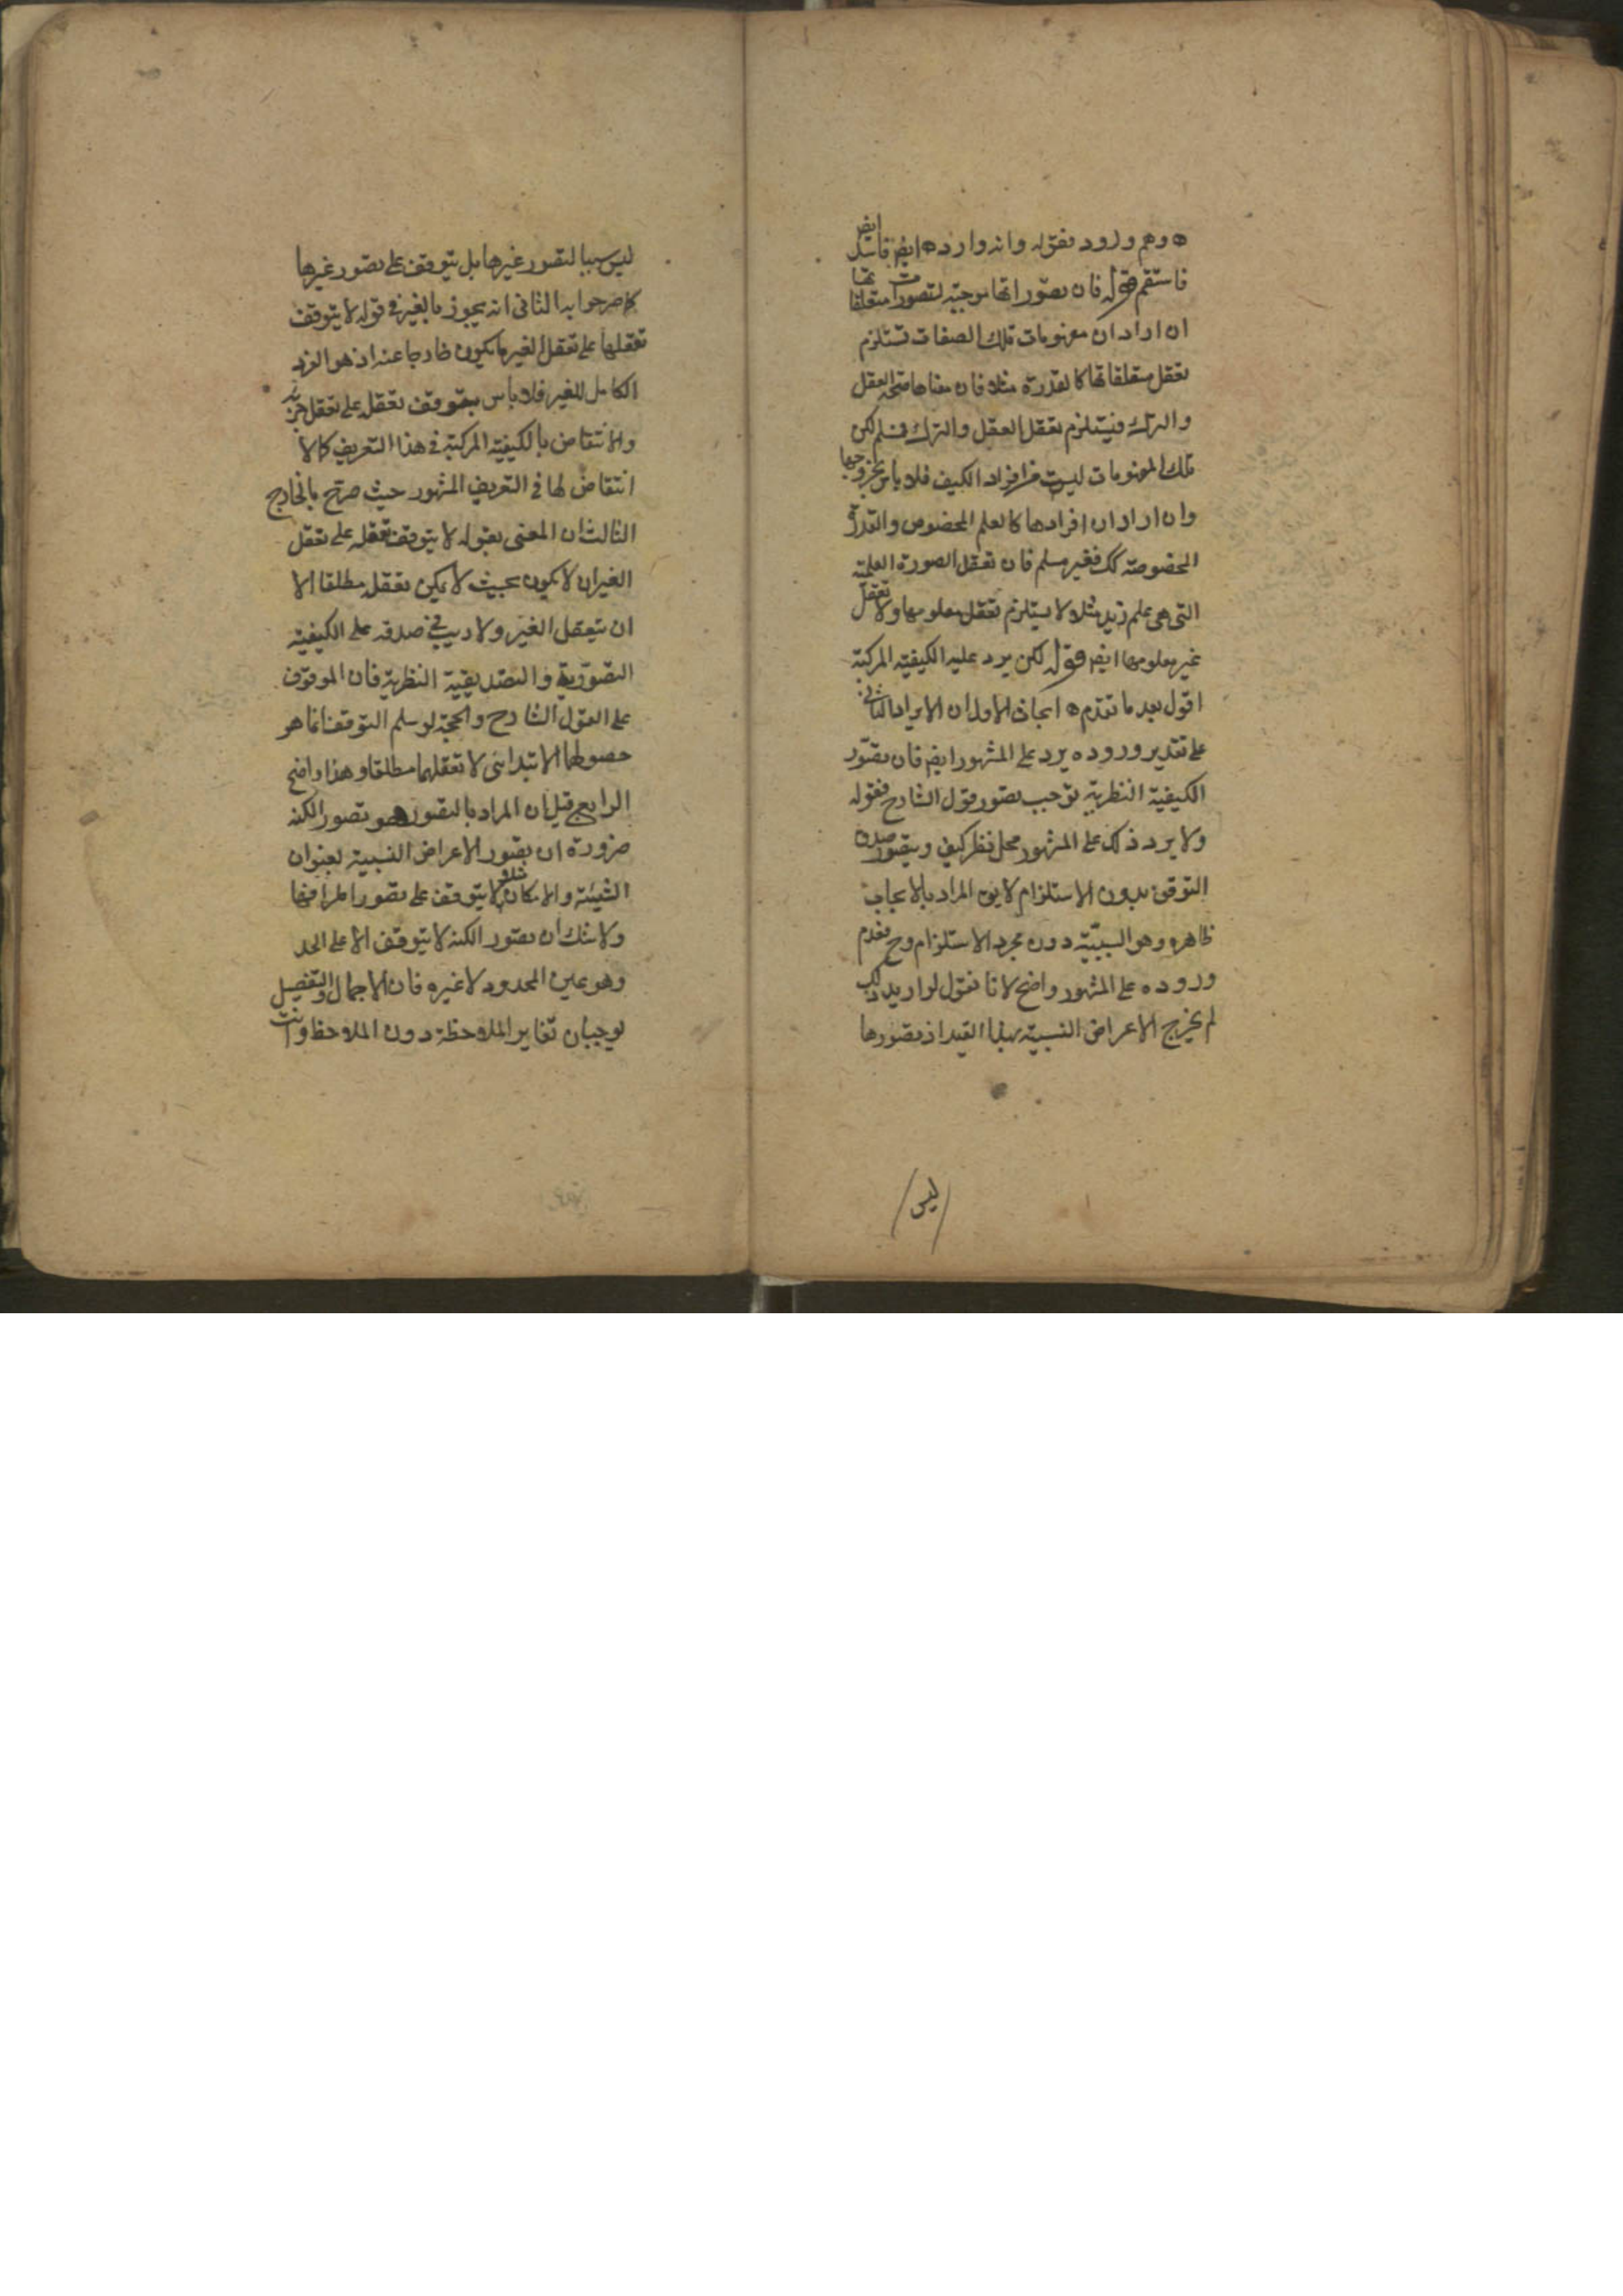 ه وهم ورود بقوله وانه وارد ه ايض فاسد ايض
فاستقم قوله فان تصوراتها موجبة لتصورات متعلقاتها
ان اراد ان مفهومات تلك الصفات تستلزم
تعقل متعلقاتها كالقدرة مثلا فان معناها صحة الفعل
والترك فيستلزم تعقل الفعل والترك فمسلم لكن
تلك المفهومات ليست من افراد الكيف فلا باس بخروجها
وان اراد ان افرادها كالعلم المخصوص والقدرة
المخصوصة كك فغير مسلم فان تعقل الصورة العلمية
التي هي علم زيد مثلا لا يستلزم تعقل معلومها ولا تعقل
غير معلومها ايض قوله لكن يرد عليه الكيفية المركبة
اقول بعد ما تقدم ه ابحاث الاول ان الايراد الثاني
على تقدير وروده يرد على المشهور ايض فان تصور
الكيفية النظرية توجب تصور قول الشارح فقوله
ولا يرد ذلك على المشهور محل نظر كيف ويتصور صدق
التوقف بدون الاستلزام لا يق المراد بالايجاب
ظاهره وهو السببية دون مجرد الاستلزام وح فعدم
وروده على المشهور واضح لانا نقول لو اريد ذلك
لم يخرج الاعراض النسبية بهذا القيد اذ تصورها
ليس
ليس سببا لتصور غيرها بل يتوقف على تصور غيرها
كما صرحوا به الثاني انه يجوز بالغير في قوله لا يتوقف
تعقلها على تعقل الغير ما يكون خارجا عنه اذ هو الفرد
الكامل للغير فلا باس بتوقف تعقله على تعقل جزئه
والانتقاض بالكيفية المركبة في هذا التعريف كالا
انتقاض لها في التعريف المشهور حيث صرح بالخارج
الثالث ان المعنى بقوله لا يتوقف تعقله على تعقل
الغير ان لا يكون بحيث لا يمكن تعقله مطلقا الا
ان يتعقل الغير ولا ريب في صدقه على الكيفية
التصورية والتصديقية النظرية فان الموقوف
على القول الشارح والحجة لو سلم التوقف انما هو
حصولهما الابتدائى لا تعقلهما مطلقا وهذا واضح
الرابع قيل ان المراد بالتصور هو تصور الكنه
ضرورة ان تصور الاعراض النسبية بعنوان
الشيئية والامكان مثلا لا يتوقف على تصور اطرافها
ولا شك ان تصور الكنه لا يتوقف الا على الحد
وهو عين المحدود لا غيره فان الاجمال والتفصيل
يوجبان تغاير الملاحظة دون الملاحظ وانت